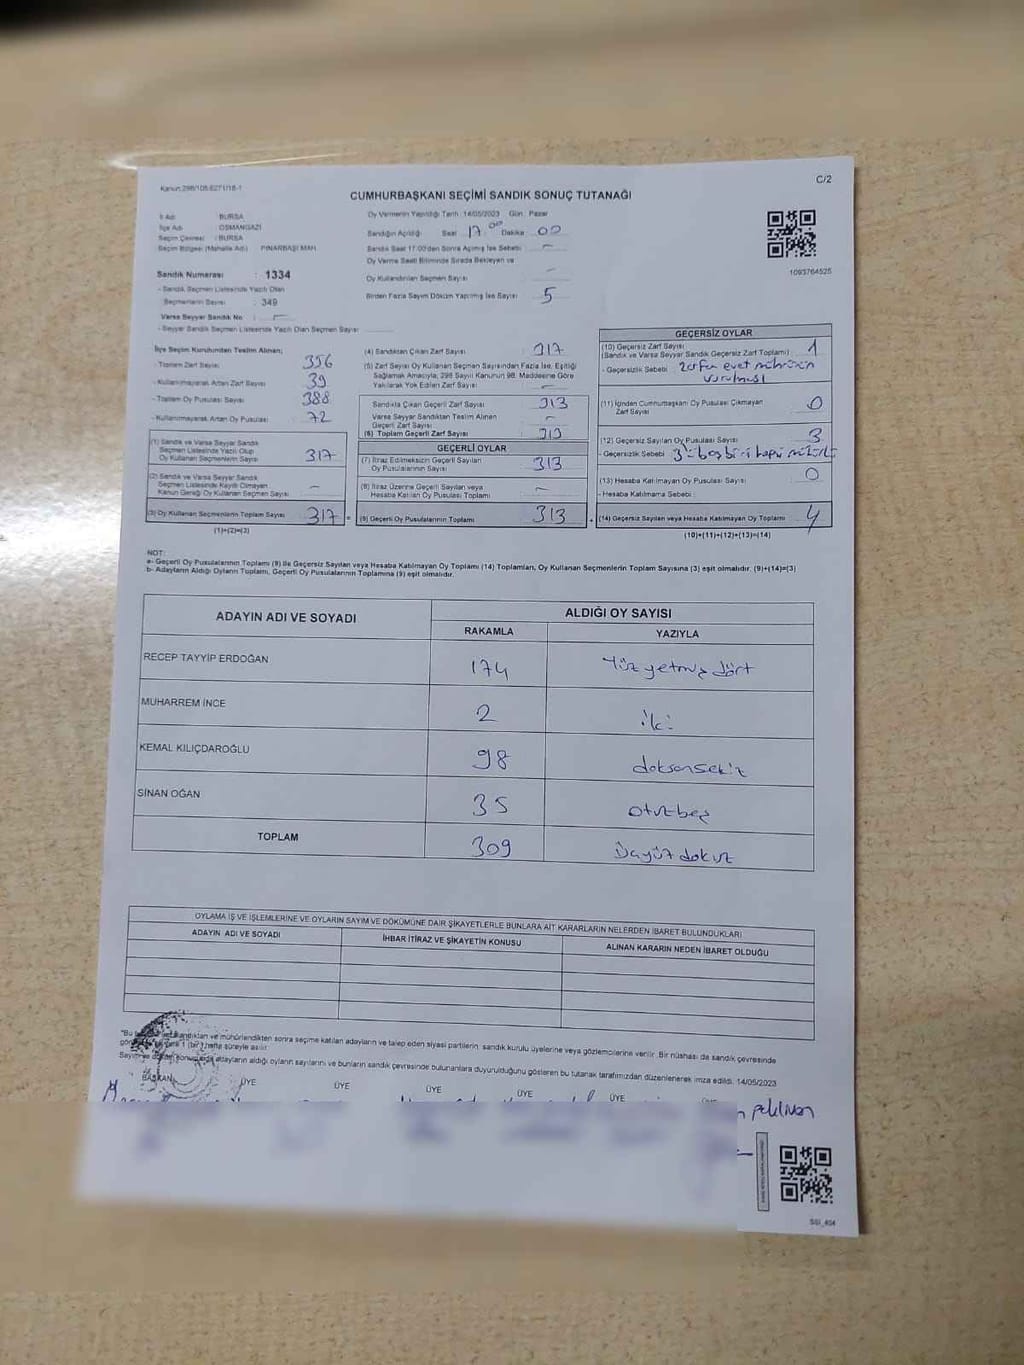 Kanun:298/105.6271/18-1
C/2
CUMHURBAŞKANI SEÇİMİ SANDIK SONUÇ TUTANAĞI
İl Adı : BURSA
İlçe Adı : OSMANGAZİ
Seçim Çevresi : BURSA
Seçim Bölgesi (Mahalle Adı) : PINARBAŞI MAH.
Sandık Numarası : 1334
- Sandık Seçmen Listesinde Yazılı Olan
Seçmenlerin Sayısı : 349
Varsa Seyyar Sandık No : -
- Seyyar Sandık Seçmen Listesinde Yazılı Olan Seçmen Sayısı
Oy Vermenin Yapıldığı Tarih :14/05/2023 Gün : Pazar
Sandığın Açıldığı : Saat 17.00 Dakika 00
Sandık Saat 17:00'den Sonra Açılmış İse Sebebi : -
Oy Verme Saati Bitiminde Sırada Bekleyen ve
Oy Kullandırılan Seçmen Sayısı : -
Birden Fazla Sayım Döküm Yapılmış İse Sayısı 5
1093764525
İlçe Seçim Kurulundan Teslim Alınan;
- Toplam Zarf Sayısı : 356
- Kullanılmayarak Artan Zarf Sayısı : 39
- Toplam Oy Pusulası Sayısı : 388
- Kullanılmayarak Artan Oy Pusulası : 72
(1) Sandık ve Varsa Seyyar Sandık
Seçmen Listesinde Yazılı Olup
Oy Kullanan Seçmenlerin Sayısı 317
(2) Sandık ve Varsa Seyyar Sandık
Seçmen Listesinde Kayıtlı Olmayan
Kanun Gereği Oy Kullanan Seçmen Sayısı -
(3) Oy Kullanan Seçmenlerin Toplam Sayısı 317 =
(1)+(2)=(3)
(4) Sandıktan Çıkan Zarf Sayısı : 317
(5) Zarf Sayısı Oy Kullanan Seçmen Sayısından Fazla İse, Eşitliği
Sağlamak Amacıyla, 298 Sayılı Kanunun 98. Maddesine Göre
Yakılarak Yok Edilen Zarf Sayısı : -
Sandıkta Çıkan Geçerli Zarf Sayısı : 313
Varsa Seyyar Sandıktan Teslim Alınan
Geçerli Zarf Sayısı : -
(6) Toplam Geçerli Zarf Sayısı : 313
GEÇERLİ OYLAR
(7) İtiraz Edilmeksizin Geçerli Sayılan
Oy Pusulalarının Sayısı : 313
(8) İtiraz Üzerine Geçerli Sayılan veya
Hesaba Katılan Oy Pusulası Toplamı : -
(9) Geçerli Oy Pusulalarının Toplamı : 313 +
GEÇERSİZ OYLAR
(10) Geçersiz Zarf Sayısı
(Sandık ve Varsa Seyyar Sandık Geçersiz Zarf Toplamı) : 1
- Geçersizlik Sebebi : zarfın evet mührünün
vurulması
(11) İçinden Cumhurbaşkanı Oy Pusulası Çıkmayan
Zarf Sayısı : 0
(12) Geçersiz Sayılan Oy Pusulası Sayısı : 3
- Geçersizlik Sebebi :
(13) Hesaba Katılmayan Oy Pusulası Sayısı : 0
- Hesaba Katılmama Sebebi :
(14) Geçersiz Sayılan veya Hesaba Katılmayan Oy Toplamı : 4
(10)+(11)+(12)+(13)=(14)
NOT:
a- Geçerli Oy Pusulalarının Toplamı (9) ile Geçersiz Sayılan veya Hesaba Katılmayan Oy Toplamı (14) Toplamları, Oy Kullanan Seçmenlerin Toplam Sayısına (3) eşit olmalıdır. (9)+(14)=(3)
b- Adayların Aldığı Oyların Toplamı, Geçerli Oy Pusulalarının Toplamına (9) eşit olmalıdır.
ADAYIN ADI VE SOYADI
ALDIĞI OY SAYISI
RAKAMLA YAZIYLA
RECEP TAYYİP ERDOĞAN 174 Yüz yetmiş dört
MUHARREM İNCE 2 iki
KEMAL KILIÇDAROĞLU 98 doksansekiz
SİNAN OĞAN 35 otuzbeş
TOPLAM 309 Üçyüz dokuz
OYLAMA İŞ VE İŞLEMLERİNE VE OYLARIN SAYIM VE DÖKÜMÜNE DAİR ŞİKAYETLERLE BUNLARA AİT KARARLARIN NELERDEN İBARET BULUNDUKLARI
ADAYIN ADI VE SOYADI
İHBAR İTİRAZ VE ŞİKAYETİN KONUSU
ALINAN KARARIN NEDEN İBARET OLDUĞU
sonra seçime katılan adayların ve talep eden siyasi partilerin, sandık kurulu üyelerine veya gözlemcilerine verilir. Bir nüshası da sandık çevresinde
1 (bir) hafta süreyle asılır.
adayların aldığı oyların sayılarını ve bunların sandık çevresinde bulunanlara duyurulduğunu gösteren bu tutanak tarafımızdan düzenlenerek imza edildi. 14/05/2023
BAŞKAN ÜYE ÜYE ÜYE ÜYE ÜYE
pehlivan
SSI_404